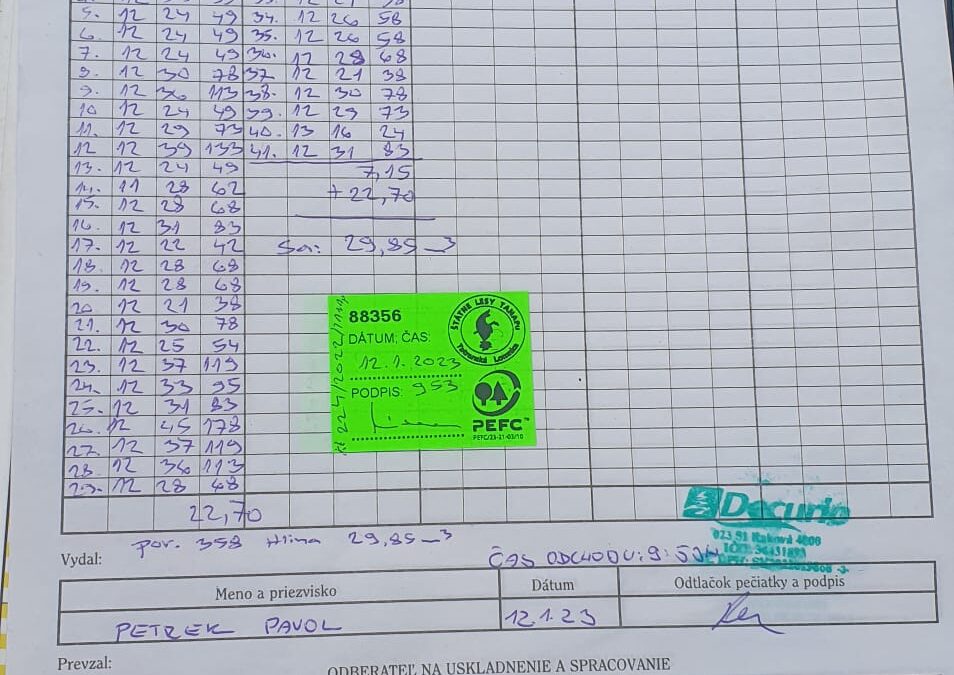 5. 12 24 49 34. 12 26 58
6. 12 24 49 35. 12 26 58
7. 12 24 49 36. 12 28 68
8. 12 30 78 37 12 21 38
9. 12 36 113 38. 12 30 78
10 12 24 49 39. 12 29 73
11. 12 29 73 40. 13 16 24
12 12 39 133 41. 12 31 83
13. 12 24 49 7,15
14. 11 28 62 + 22,70
15. 12 28 68
16. 12 31 83
17. 12 22 42 Sa: 29,85
18. 12 28 68
19. 12 28 68
20 12 21 38
21. 12 30 78
22. 12 25 54
23. 12 37 119
24. 12 33 95
25. 12 31 83
26. 12 45 178
27. 12 37 119
28. 12 36 113
29. 12 28 68
22,70
88356
DÁTUM; ČAS:
12.1.2023
PODPIS: 953
ŠTÁTNE LESY TANAPU
Tatranská Lomnica
PEFC™
PEFC/23-21-03/10
Decurio
023 51 Raková
por. 358 Hlina 29,85
Vydal:
ČAS ODCHODU: 9:
Meno a priezvisko Dátum Odtlačok pečiatky a podpis
PETREK PAVOL 12.1.23
Prevzal:
ODBERATEĽ NA USKLADNENIE A SPRACOVANIE